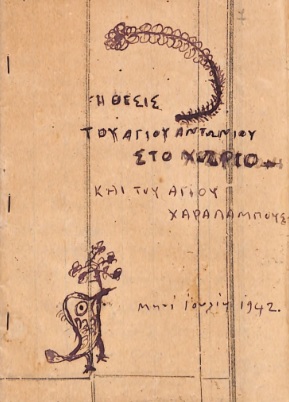 Η ΘΕΣΙΣ
ΤΟΥ ΑΓΙΟΥ ΑΝΤΩΝΙΟΥ
ΣΤΟ ΧΩΡΙΟ
ΚΑΙ ΤΟΥ ΑΓΙΟΥ
ΧΑΡΑΛΑΜΠΟΥΣ
Μηνί Ιουλίῳ 1942.